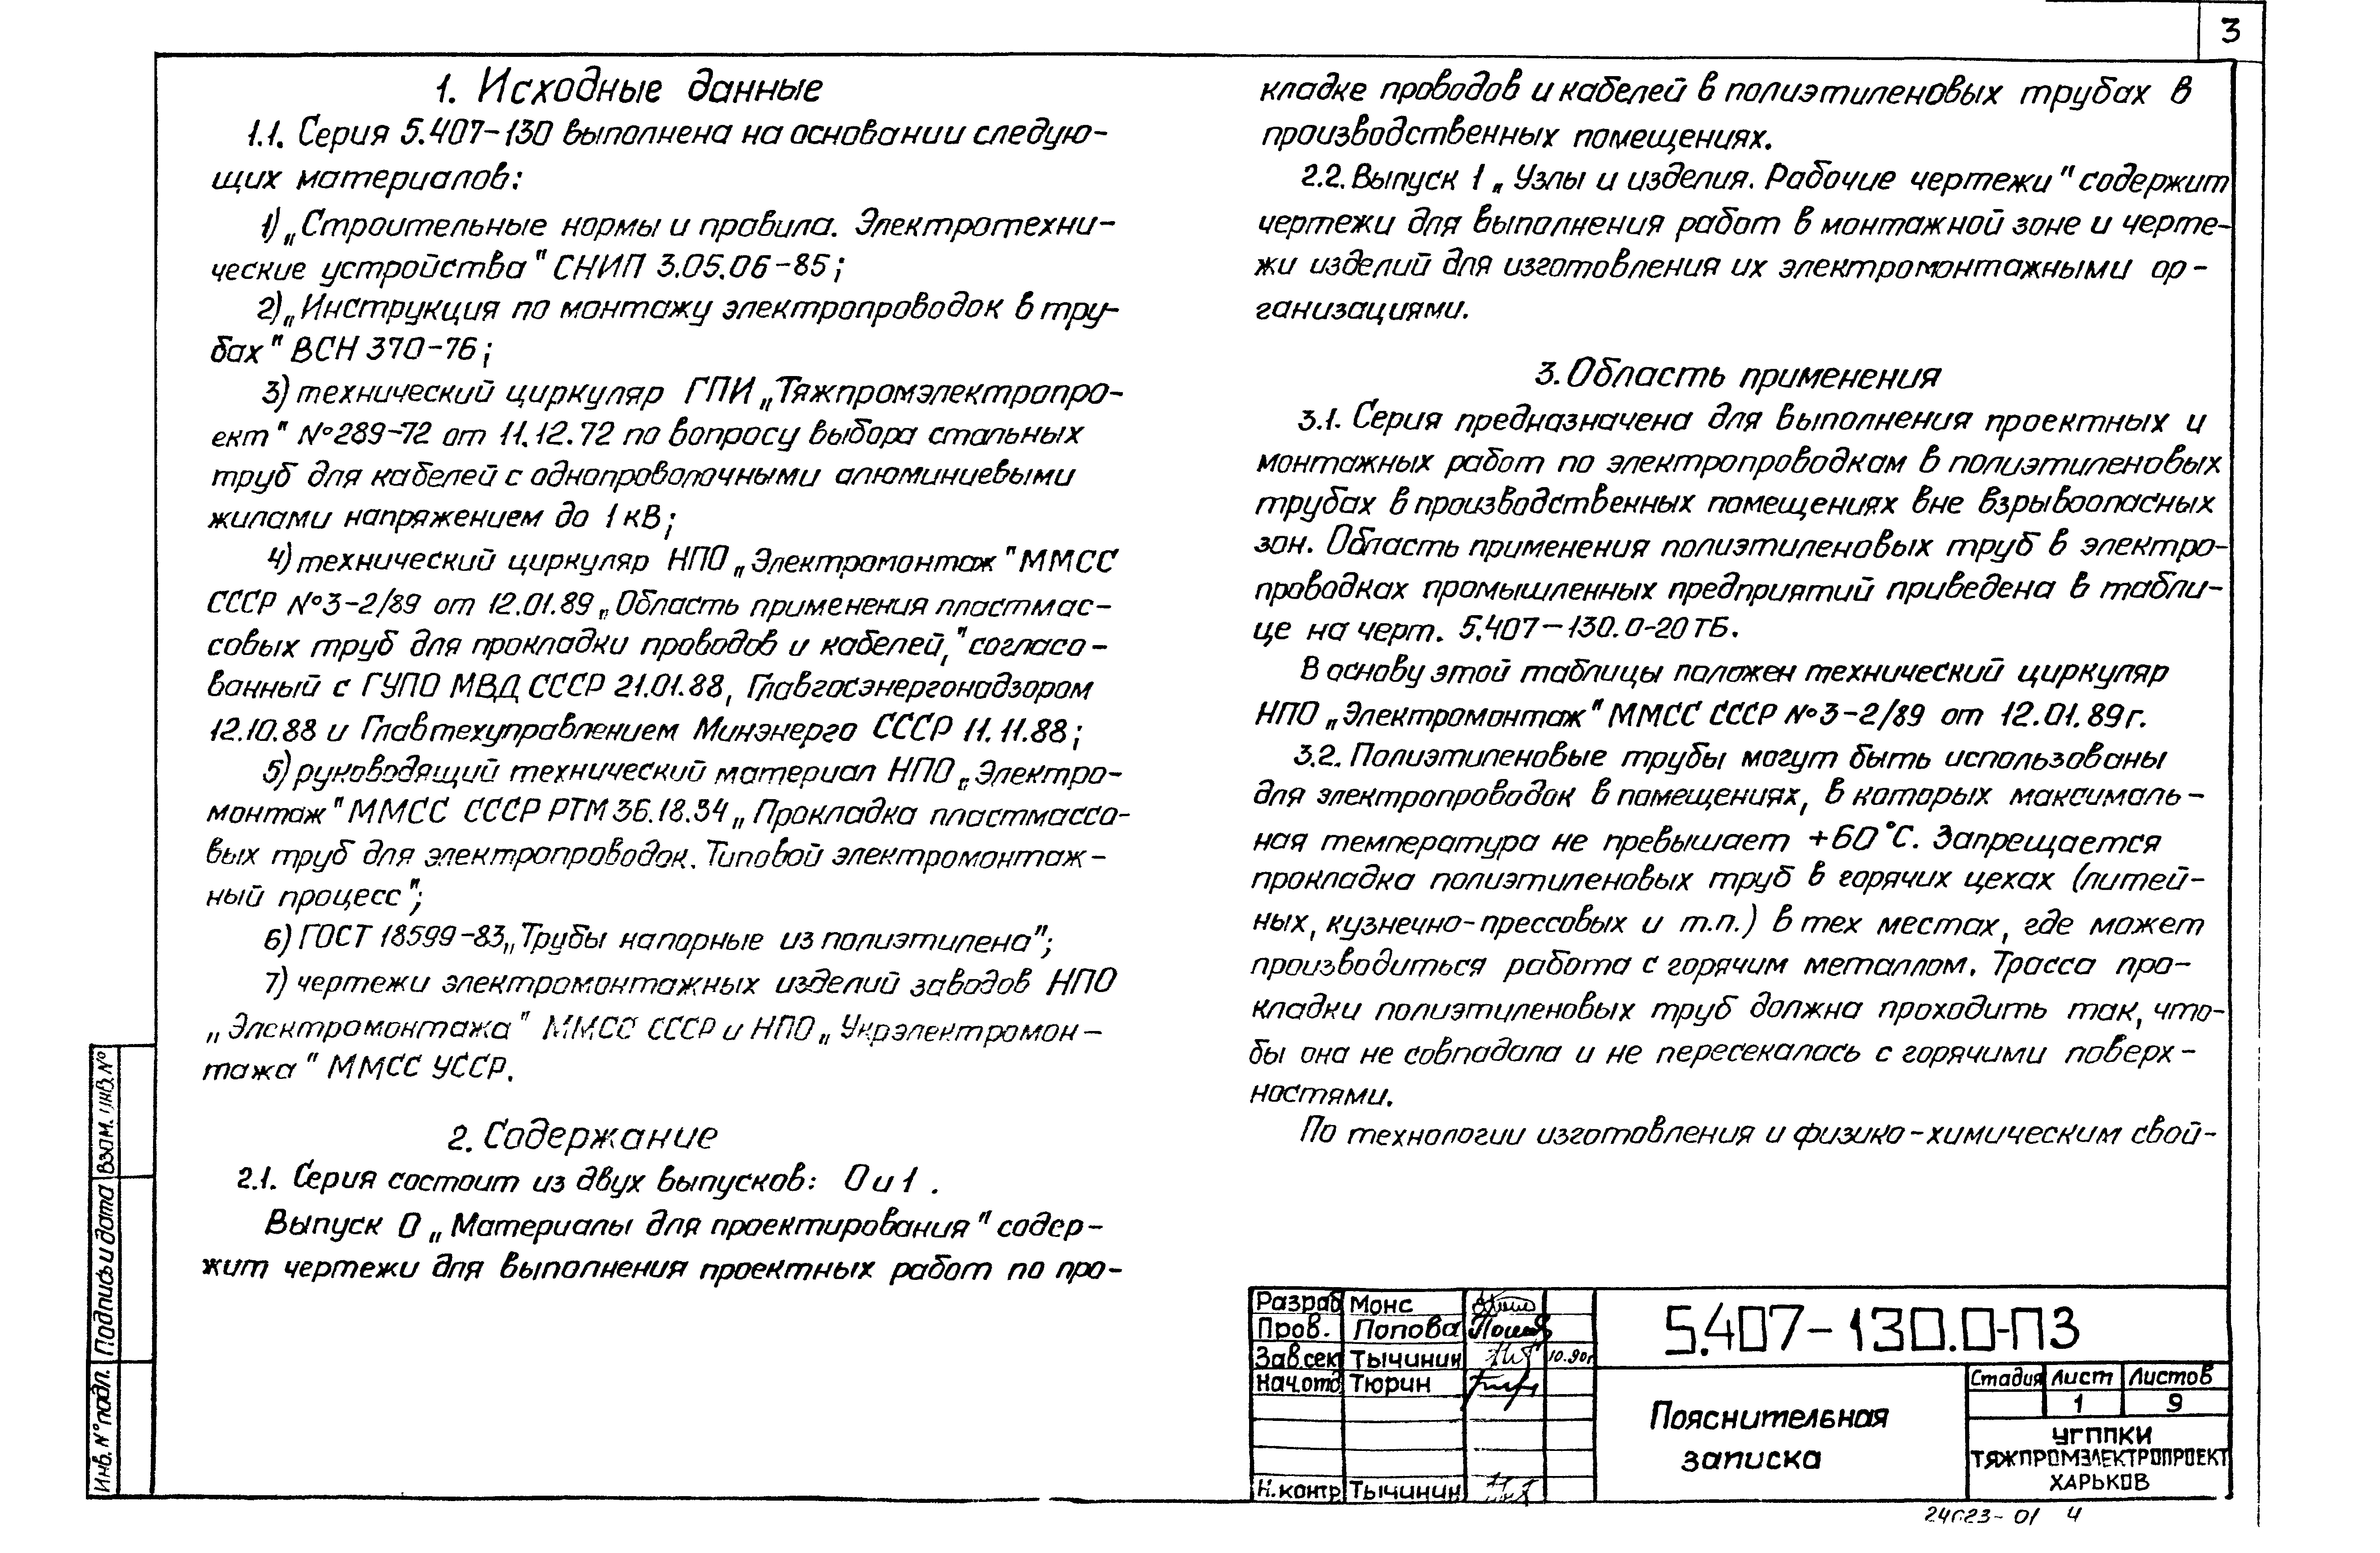 3
1. Исходные данные
1.1. Серия 5.407-130 выполнена на основании следую-
щих материалов:
1) „Строительные нормы и правила. Электротехни-
ческие устройства" СНИП 3.05.06-85;
2) „Инструкция по монтажу электропроводок в тру-
бах" ВСН 370-76;
3) технический циркуляр ГПИ „Тяжпромэлектропро-
ект" №289-72 от 11.12.72 по вопросу выбора стальных
труб для кабелей с однопроволочными алюминиевыми
жилами напряжением до 1 кВ;
4) технический циркуляр НПО „Электромонтаж" ММСС
СССР №3-2/89 от 12.01.89 „Область применения пластмас-
совых труб для прокладки проводов и кабелей," согласо-
ванный с ГУПО МВД СССР 21.01.88, Главгосэнергонадзором
12.10.88 и Главтехуправлением Минэнерго СССР 11.11.88;
5) руководящий технический материал НПО „Электро-
монтаж" ММСС СССР РТМ 36.18.34 „Прокладка пластмассо-
вых труб для электропроводок. Типовой электромонтаж-
ный процесс";
6) ГОСТ 18599-83 „Трубы напорные из полиэтилена";
7) чертежи электромонтажных изделий заводов НПО
„Электромонтажа" ММСС СССР и НПО „Укрэлектромон-
тажа" ММСС УССР.
2. Содержание
2.1. Серия состоит из двух выпусков: 0 и 1.
Выпуск 0 „Материалы для проектирования" содер-
жит чертежи для выполнения проектных работ по про-
кладке проводов и кабелей в полиэтиленовых трубах в
производственных помещениях.
2.2. Выпуск 1 „Узлы и изделия. Рабочие чертежи" содержит
чертежи для выполнения работ в монтажной зоне и черте-
жи изделий для изготовления их электромонтажными ор-
ганизациями.
3. Область применения
3.1. Серия предназначена для выполнения проектных и
монтажных работ по электропроводкам в полиэтиленовых
трубах в производственных помещениях вне взрывоопасных
зон. Область применения полиэтиленовых труб в электро-
проводках промышленных предприятий приведена в табли-
це на черт. 5.407-130.0-20ТБ.
В основу этой таблицы положен технический циркуляр
НПО „Электромонтаж" ММСС СССР №3-2/89 от 12.01.89г.
3.2. Полиэтиленовые трубы могут быть использованы
для электропроводок в помещениях, в которых максималь-
ная температура не превышает +60°С. Запрещается
прокладка полиэтиленовых труб в горячих цехах (литей-
ных, кузнечно-прессовых и т.п.) в тех местах, где может
производиться работа с горячим металлом. Трасса про-
кладки полиэтиленовых труб должна проходить так, что-
бы она не совпадала и не пересекалась с горячими поверх-
ностями.
По технологии изготовления и физико-химическим свой-
Инв.№ подл. Подпись и дата Взам. инв.№
Разраб Монс
Пров. Попова
Зав.сек Тычинин 10.90г
Нач.отд Тюрин
Н.контр Тычинин
5.407-130.0-ПЗ
Пояснительная
записка
Стадия Лист Листов
1 9
УГППКИ
ТЯЖПРОМЭЛЕКТРОПРОЕКТ
ХАРЬКОВ
24623-01 4